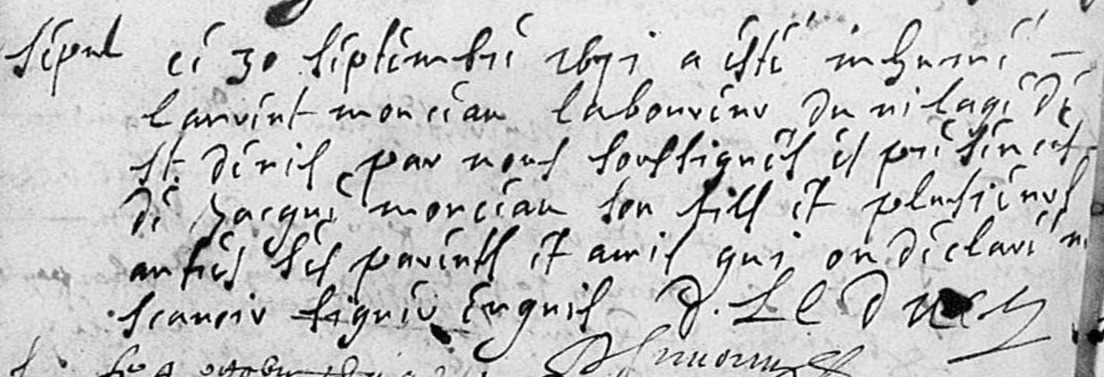 sepul ce 30 septembre 1691 a este inhumé –
laurent monceau laboureur du vilage de
st. denis par nous soussignés es presences
de Jacque monceau son fils et plusieurs
autres ses parents et amis qui on declaré ne
scavoir signer enquis D. LeDuc